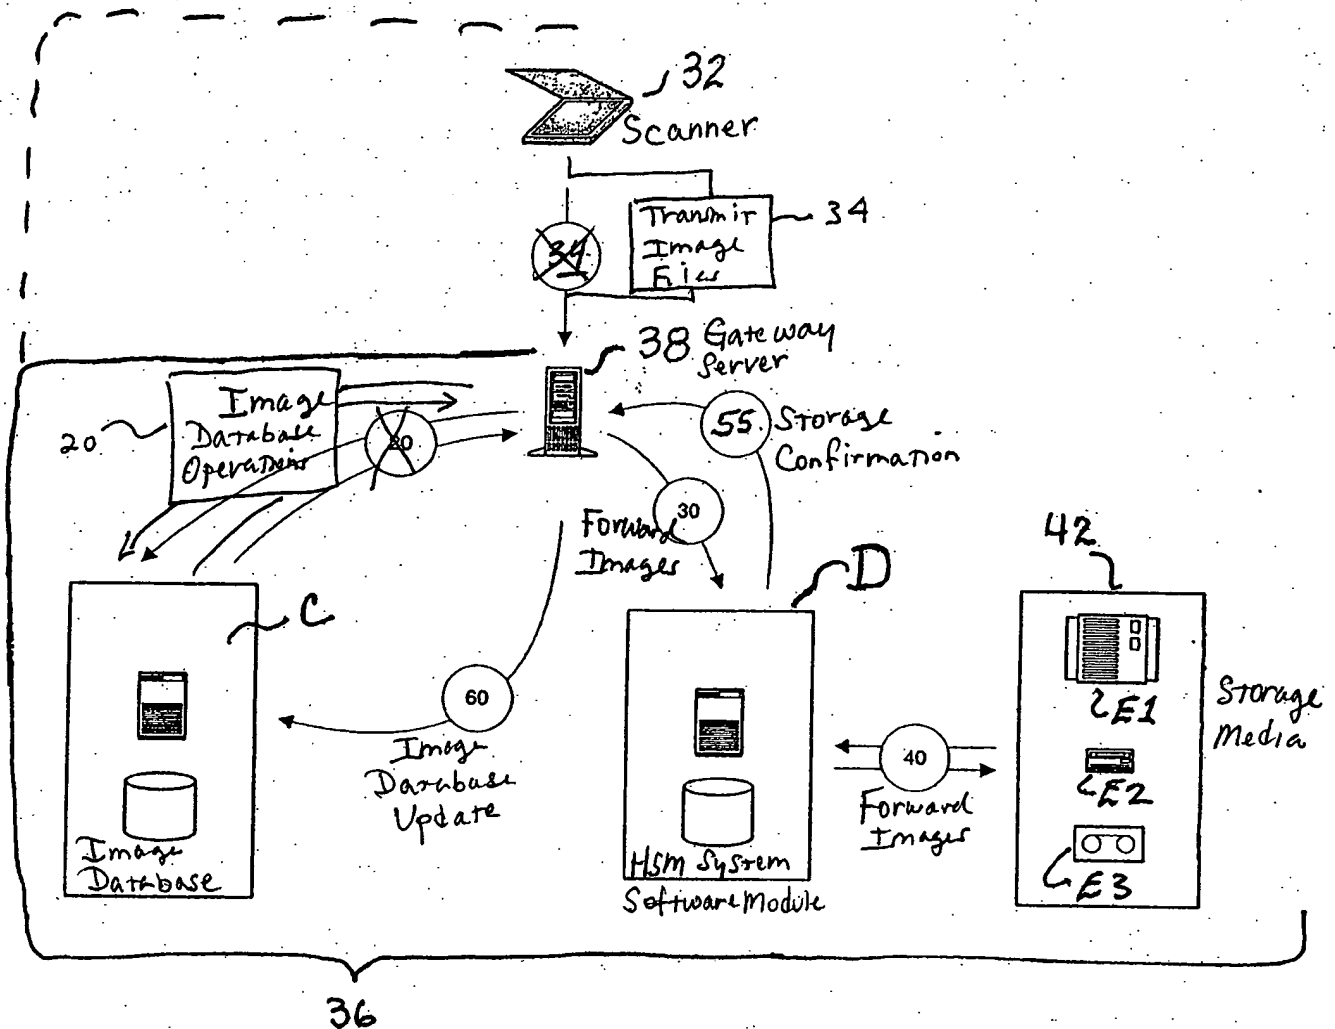 32
Scanner
Transmit
Image
Files
34
34
38 Gateway
Server
Image
Database
Operations
20
20
55
Storage
Confirmation
30
Forward
Images
42
D
C
E1
E2
E3
Storage
Media
60
Image
Database
Update
40
Forward
Images
Image
Database
HSM System
Software Module
36